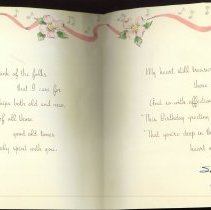 nk of the folks
that I care for
ships both old and new,
of all those
good old times
ly spent with you.
My heart still treasures
these
And so with affection
This Birthday greeting
That you're deep in the
heart